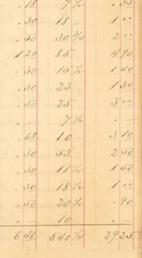 .18 7 ½ .55
.30 18 - 1 --
.50 30 ½ 2 --
1 20 85 4 90
.30 15 ½ 1 40
.30 23 1 30
.50 25 3 --
7 ½
.68 10 - 3 10
.30 53 2 50
.30 11 ½ 1 50
.30 18 ½ 1 --
.50 20 ½ .90
10 -
6 46 540 ½ 29 25